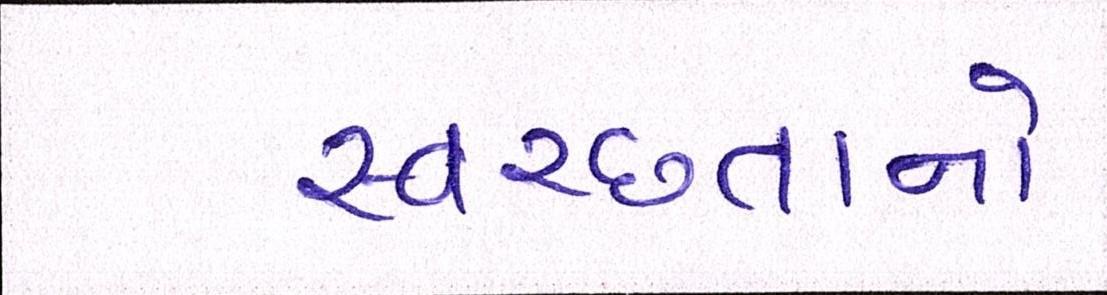 સ્વચ્છતાનો